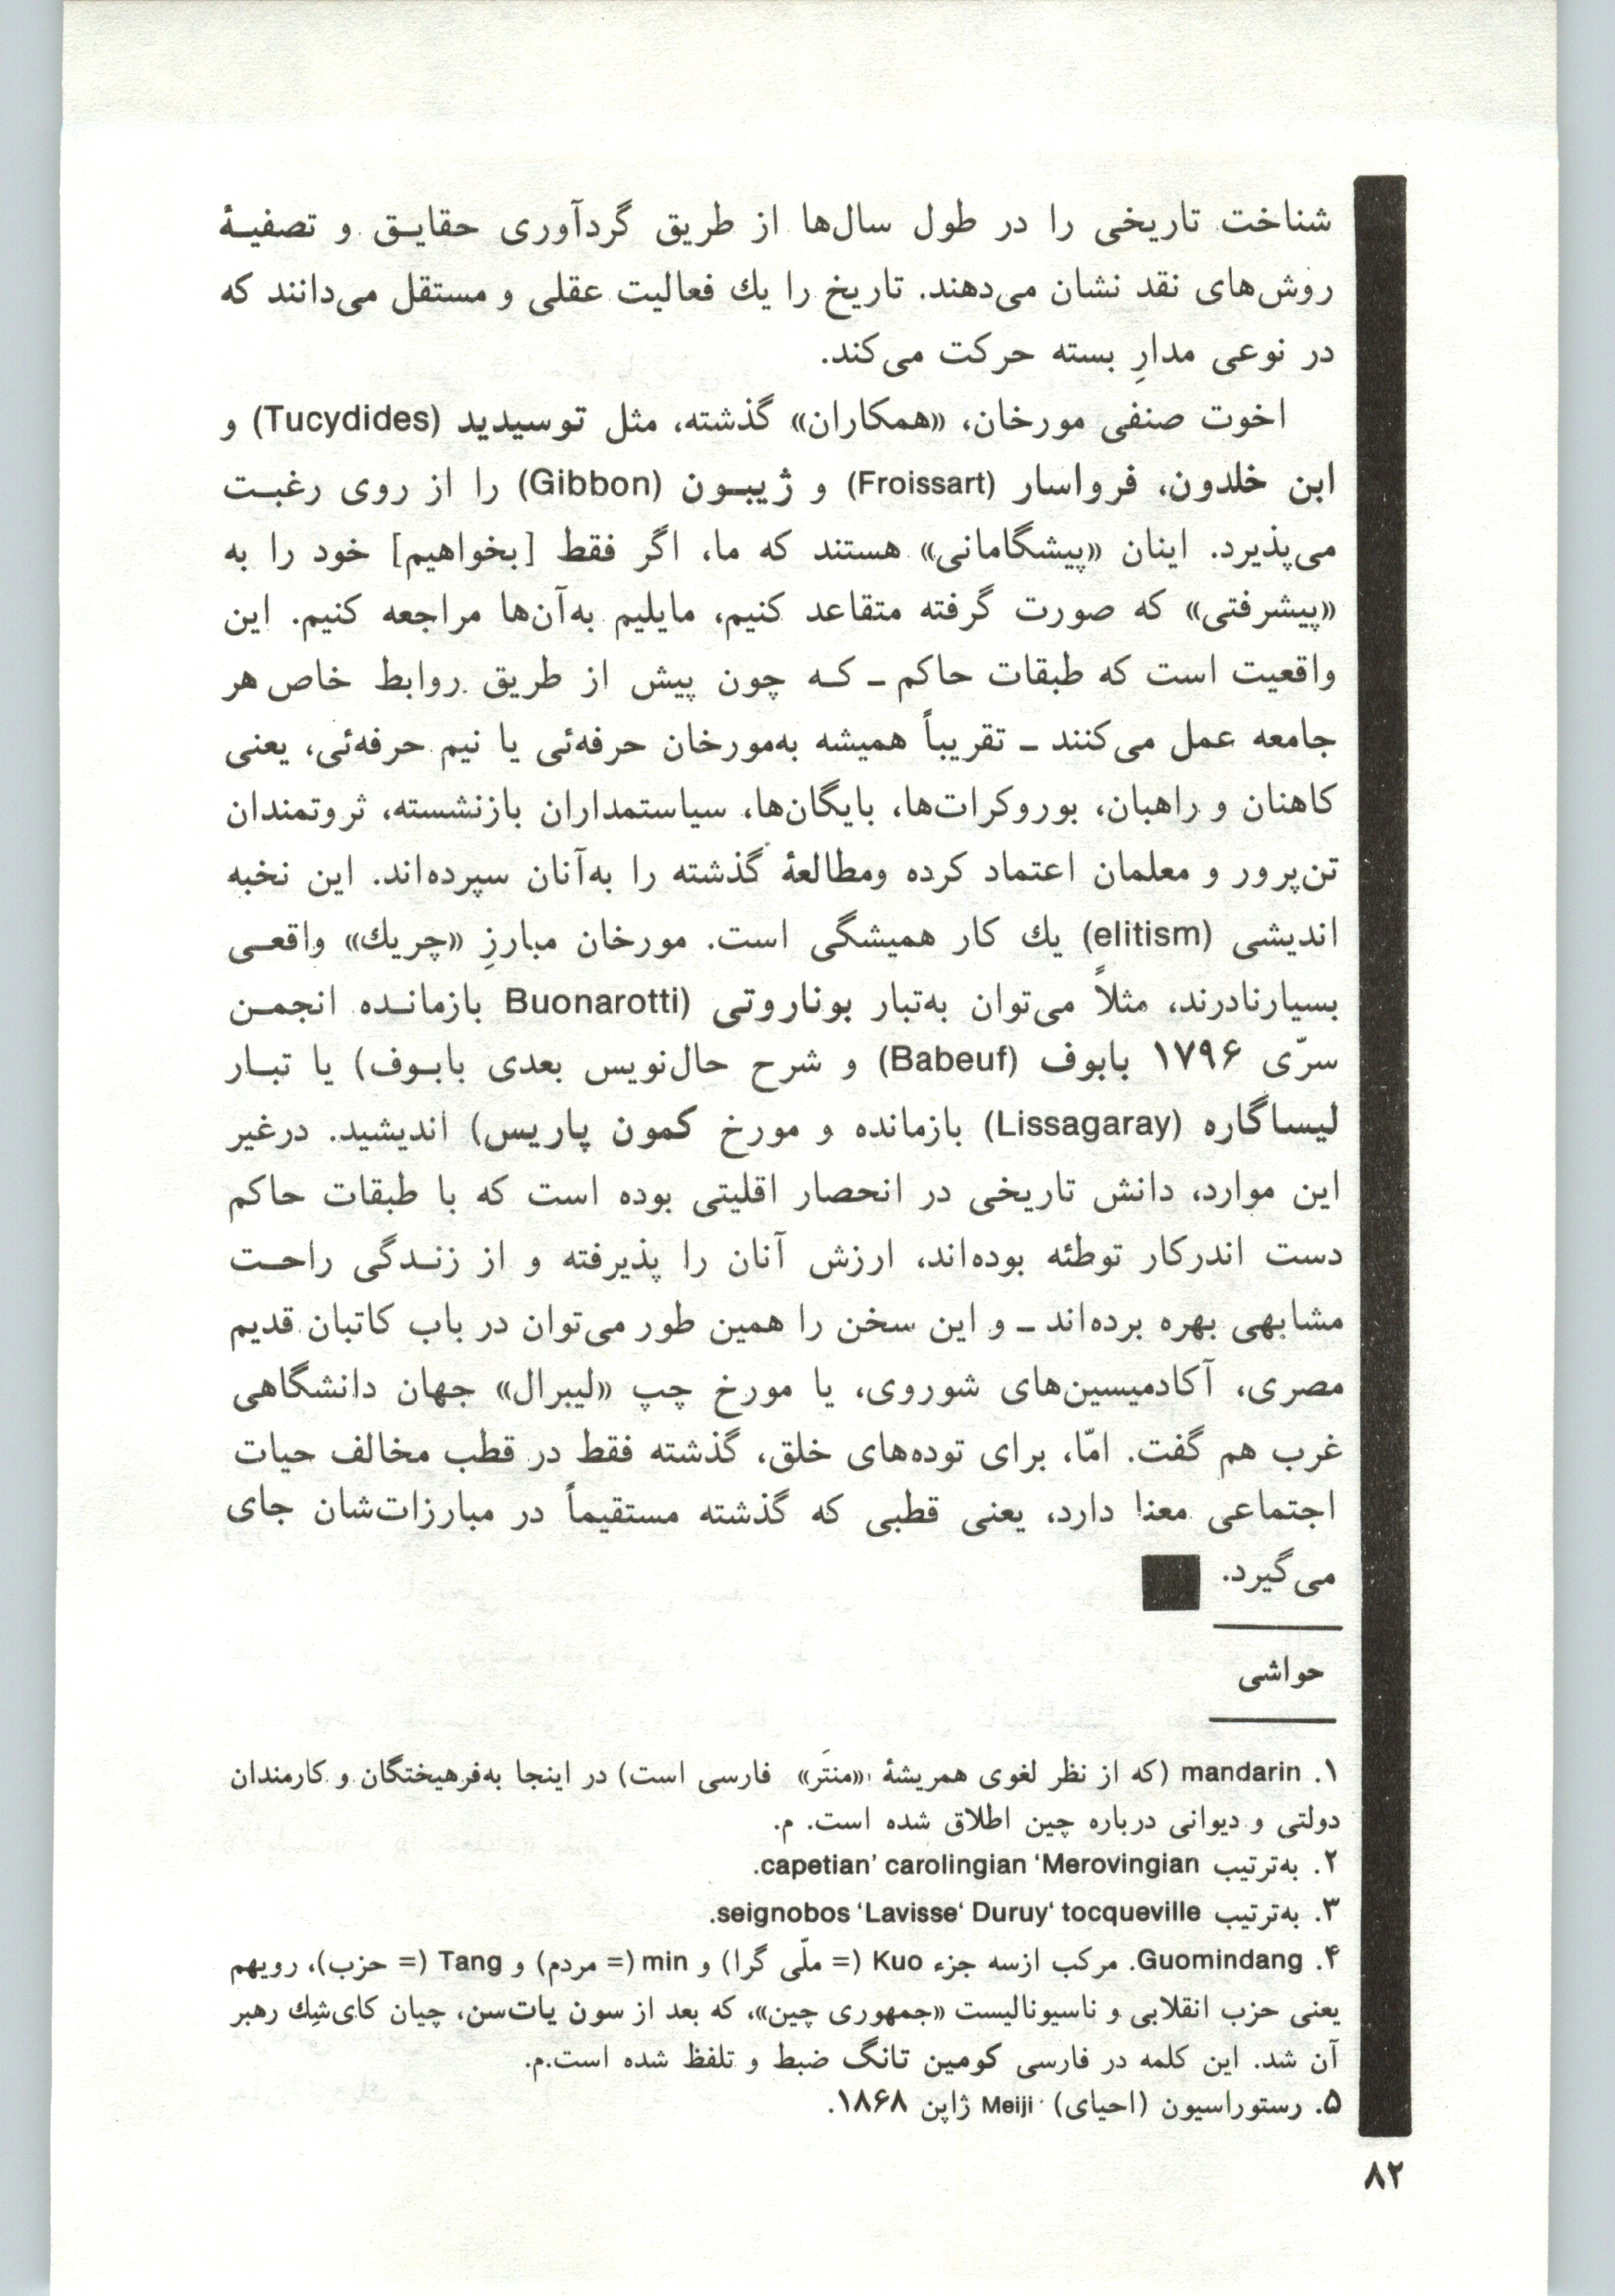 شناخت تاریخی را در طول سال‌ها از طریق گردآوری حقایق و تصفیهٔ
روش‌های نقد نشان می‌دهند. تاریخ را یك فعالیت عقلی و مستقل می‌دانند که
در نوعی مدارِ بسته حرکت می‌کند.
اخوت صنفی مورخان، «همکاران» گذشته، مثل توسیدید (Tucydides) و
ابن خلدون، فرواسار (Froissart) و ژیبون (Gibbon) را از روی رغبت
می‌پذیرد. اینان «پیشگامانی» هستند که ما، اگر فقط [بخواهیم] خود را به
«پیشرفتی» که صورت گرفته متقاعد کنیم، مایلیم به‌آن‌ها مراجعه کنیم. این
واقعیت است که طبقات حاکم ـ که چون پیش از طریق روابط خاص هر
جامعه عمل می‌کنند ـ تقریباً همیشه به‌مورخان حرفه‌ئی یا نیم حرفه‌ئی، یعنی
کاهنان و راهبان، بوروکرات‌ها، بایگان‌ها، سیاستمداران بازنشسته، ثروتمندان
تن‌پرور و معلمان اعتماد کرده ومطالعهٔ گذشته را به‌آنان سپرده‌اند. این نخبه
اندیشی (elitism) یك کار همیشگی است. مورخان مبارزِ «چریك» واقعی
بسیارنادرند، مثلاً می‌توان به‌تبار بوناروتی (Buonarotti بازمانده انجمن
سرّی ۱۷۹۶ بابوف (Babeuf) و شرح حال‌نویس بعدی بابوف) یا تبار
لیساگاره (Lissagaray) بازمانده و مورخ کمون پاریس) اندیشید. درغیر
این موارد، دانش تاریخی در انحصار اقلیتی بوده است که با طبقات حاکم
دست اندرکار توطئه بوده‌اند، ارزش آنان را پذیرفته و از زندگی راحت
مشابهی بهره برده‌اند ـ و این سخن را همین طور می‌توان در باب کاتبان قدیم
مصری، آکادمیسین‌های شوروی، یا مورخ چپ «لیبرال» جهان دانشگاهی
غرب هم گفت. امّا، برای توده‌های خلق، گذشته فقط در قطب مخالف حیات
اجتماعی معنا دارد، یعنی قطبی که گذشته مستقیماً در مبارزات‌شان جای
می‌گیرد.
حواشی
۱. mandarin (که از نظر لغوی همریشهٔ «منتَر» فارسی است) در اینجا به‌فرهیختگان و کارمندان
دولتی و دیوانی درباره چین اطلاق شده است. م.
۲. به‌ترتیب capetian’ carolingian ‘Merovingian.
۳. به‌ترتیب seignobos ‘Lavisse‘ Duruy‘ tocqueville.
۴. Guomindang. مرکب ازسه جزء Kuo (= ملّی گرا) و min (= مردم) و Tang (= حزب)، رویهم
یعنی حزب انقلابی و ناسیونالیست «جمهوری چین»، که بعد از سون یات‌سن، چیان کای‌شِك رهبر
آن شد. این کلمه در فارسی کومین تانگ ضبط و تلفظ شده است.م.
۵. رستوراسیون (احیای) Meiji ژاپن ۱۸۶۸.
۸۲